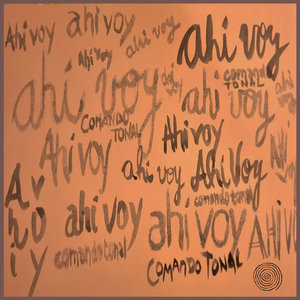 Ahi voy
ahi voy
ahi voy
ahi voy
Ahi voy
ahi voy
comando
TONAL
ahi voy
COMANDO
TONAL
Ahi voy
Ahi voy
ahi voy
Ahi Voy
comando tonal
Ahi voy
ahi voy
ahí voy
AHI V
comando tonal
COMANDO TONAL